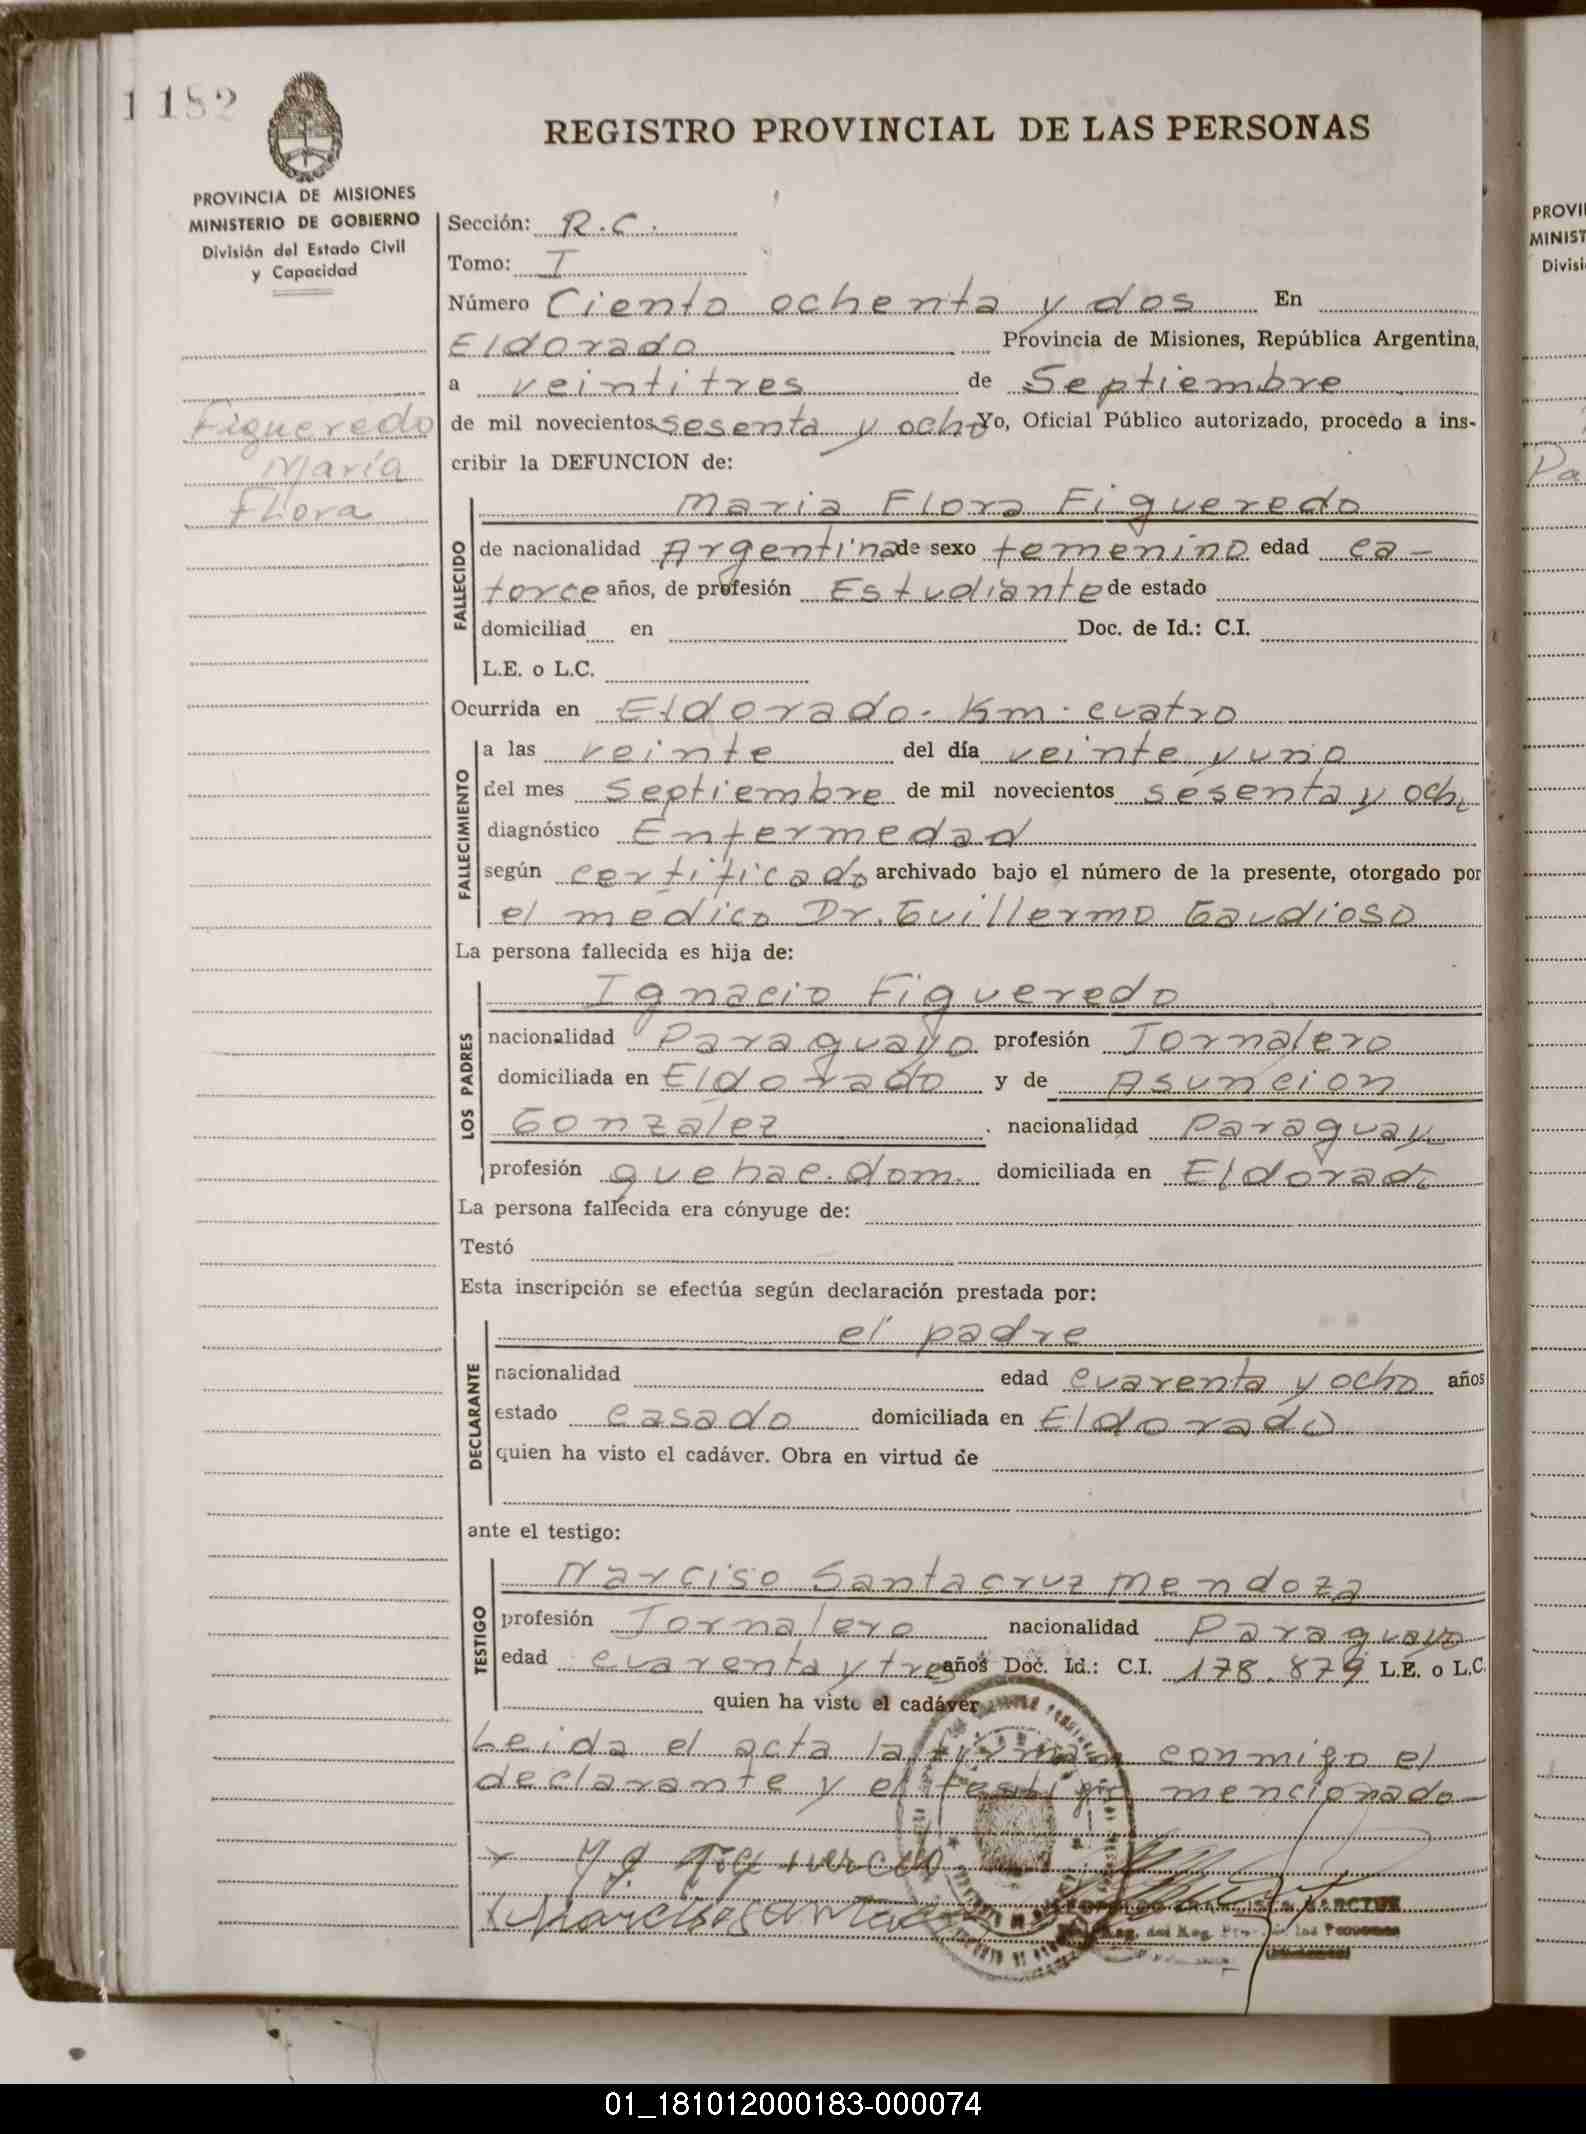 1 182
REGISTRO PROVINCIAL DE LAS PERSONAS
PROVINCIA DE MISIONES
MINISTERIO DE GOBIERNO
División del Estado Civil
y Capacidad
Figueredo
María
Flora
Sección: R.C.
Tomo: I
Número Ciento ochenta y dos En
Eldorado Provincia de Misiones, República Argentina,
a veintitres de Septiembre
de mil novecientos sesenta y ocho Yo, Oficial Público autorizado, procedo a ins-
cribir la DEFUNCION de:
FALLECIDO
Maria Flora Figueredo
de nacionalidad Argentina de sexo femenino edad ca-
torce años, de profesión Estudiante de estado
domiciliad en Doc. de Id.: C.I.
L.E. o L.C.
Ocurrida en Eldorado. Km. cuatro
FALLECIMIENTO
a las veinte del día veinte y uno
del mes Septiembre de mil novecientos sesenta y ocho
diagnóstico Enfermedad
según certificado archivado bajo el número de la presente, otorgado por
el médico Dr. Guillermo Gaudioso
La persona fallecida es hija de:
LOS PADRES
Ignacio Figueredo
nacionalidad Paraguayo profesión Jornalero
domiciliada en Eldorado y de Asuncion
Gonzalez . nacionalidad Paraguay
profesión quehac. dom. domiciliada en Eldorado
La persona fallecida era cónyuge de:
Testó
Esta inscripción se efectúa según declaración prestada por:
DECLARANTE
el padre
nacionalidad edad cuarenta y ocho años
estado casado domiciliada en Eldorado
quien ha visto el cadáver. Obra en virtud de
ante el testigo:
TESTIGO
Narciso Santacruz Mendoza
profesión Jornalero nacionalidad Paraguayo
edad cuarenta y tres años Doc. Id.: C.I. 178.879 L.E. o L.C.
quien ha visto el cadáver
Leida el acta la firman conmigo el
declarante y el testigo mencionado
Narciso Santac
PROVI
MINIST
Divisi
Pa
01_181012000183-000074